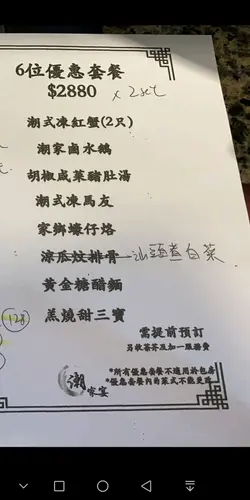 6位優惠套餐
$2880 x 2set
潮式凍紅蟹(2只)
潮家鹵水鵝
胡椒咸菜豬肚湯
潮式凍馬友
家鄉蠔仔烙
涼瓜炆排骨 汕頭煮白菜
黃金糖醋麵
羔燒甜三寶
需提前預訂
另收茶芥及加一服務費
*所有優惠套餐不適用於包房
*優惠套餐內的菜式不能更改
潮
家宴